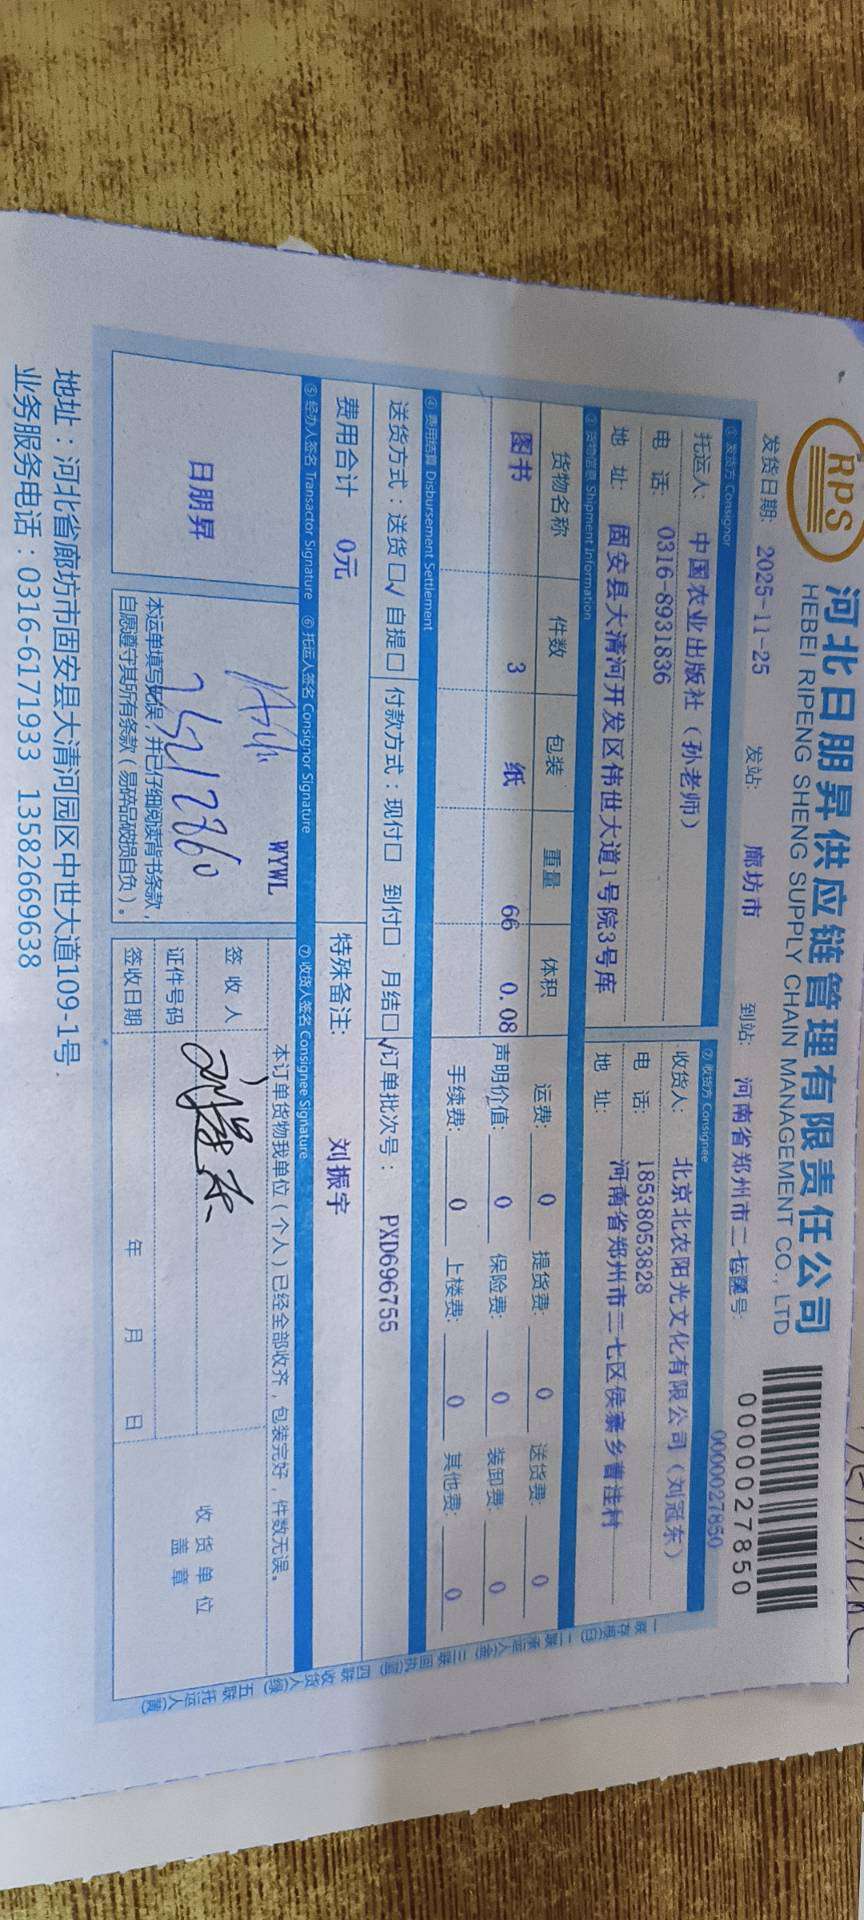 RPS
河北日朋昇供应链管理有限责任公司
HEBEI RIPENG SHENG SUPPLY CHAIN MANAGEMENT CO., LTD
0000027850
发货日期: 2025-11-25 发站: 廊坊市 到站: 河南省郑州市二七区 号: 0000027850
① 发货方 Consignor
② 收货方 Consignee
托运人: 中国农业出版社（孙老师）
收货人: 北京北农阳光文化有限公司（刘冠东）
电 话: 0316-8931836
电 话: 18538053828
地 址: 固安县大清河开发区伟世大道1号院3号库
地 址: 河南省郑州市二七区侯寨乡曹洼村
③ 货物信息 Shipment Information
货物名称 件数 包装 重量 体积
运费: 0 提货费: 0 送货费: 0
图书 3 纸 66 0.08
声明价值: 0 保险费: 0 装卸费: 0
手续费: 0 上楼费: 0 其他费: 0
④ 费用结算 Disbursement Settlement
送货方式：送货□√ 自提□ 付款方式：现付□ 到付□ 月结□√ 订单批次号： PXD696755
费用合计 0元 特殊备注: 刘振宇
⑤ 经办人签名 Transactor Signature ⑥ 托运人签名 Consignor Signature ⑦ 收货人签名 Consignee Signature
日朋昇
WYWL
本运单填写无误，并已仔细阅读背书条款，
自愿遵守其所有条款（易碎品破损自负）。
本订单货物我单位（个人）已经全部收齐，包装完好，件数无误。
签 收 人
证件号码
签收日期 年 月 日
收货单位
盖章
一联存根(白) 二联承运人(金) 三联回执(蓝) 四联收货人(绿) 五联托运人(黄)
地址：河北省廊坊市固安县大清河园区中世大道109-1号
业务服务电话：0316-6171933 13582669638